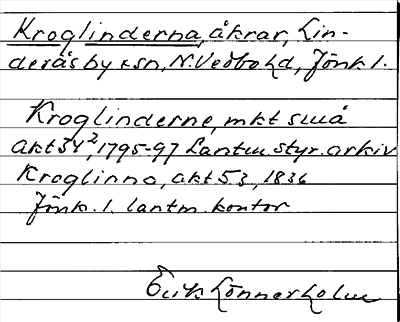 Kroglinderna, åkrar, Lin-
derås by o sn, N. Vedbo hd, Jönk. l.
Kroglinderne, mkt små
akt 34², 1795-97 Lantm. styr. arkiv
Kroglinna, akt 53, 1836
Jönk. l. lantm. kontor
Erik Lönnerholm